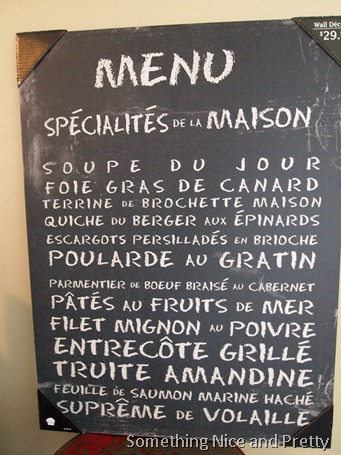 Wall Déc
$29.
MENU
SPÉCIALITÉS DE LA MAISON
SOUPE DU JOUR
FOIE GRAS DE CANARD
TERRINE DE BROCHETTE MAISON
QUICHE DU BERGER AUX ÉPINARDS
ESCARGOTS PERSILLADÉS EN BRIOCHE
POULARDE AU GRATIN
PARMENTIER DE BOEUF BRAISÉ AU CABERNET
PÂTÉS AU FRUITS DE MER
FILET MIGNON AU POIVRE
ENTRECÔTE GRILLÉ
TRUITE AMANDINE
FEUILLE DE SAUMON MARINE HACHÉ
SUPRÊME DE VOLAILLE
Something Nice and Pretty